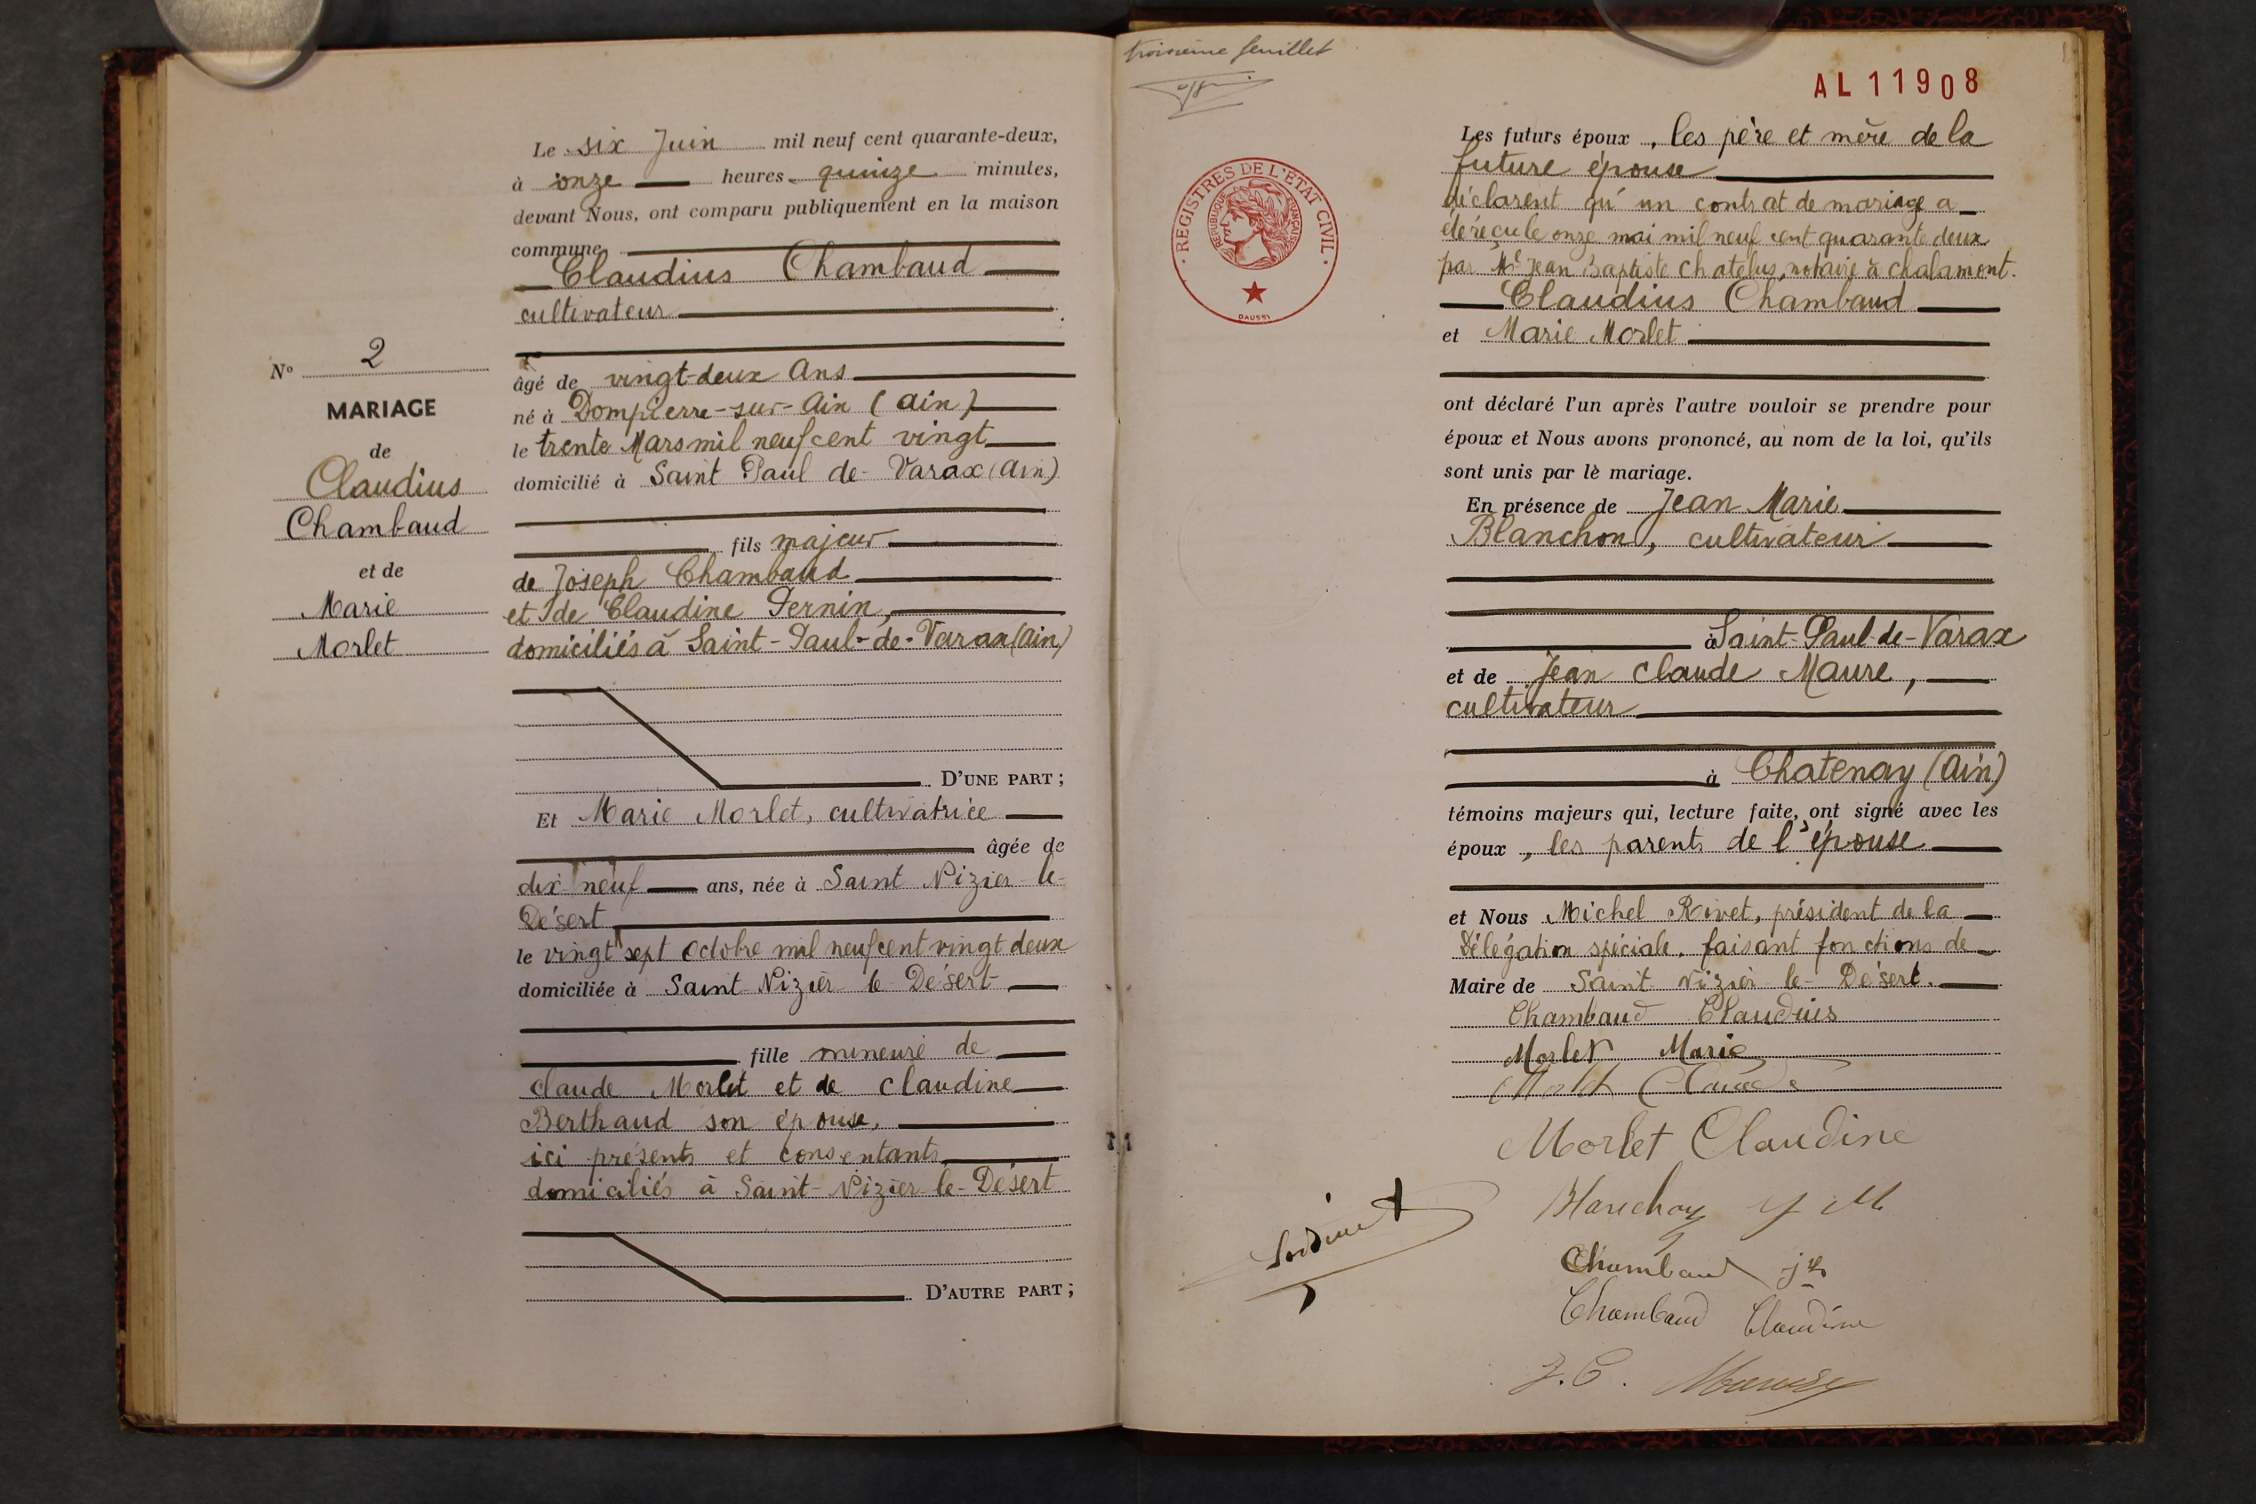 Le six Juin mil neuf cent quarante-deux,
à onze heures quinze minutes,
devant Nous, ont comparu publiquement en la maison
commune
Claudius Chambaud
cultivateur
âgé de vingt-deux ans
né à Dompierre-sur-Ain (Ain)
le trente Mars mil neuf cent vingt
domicilié à Saint Paul de Varax (Ain)
fils majeur
de Joseph Chambaud
et de Claudine Pernin,
domiciliés à Saint-Paul-de-Varax (Ain)
D'UNE PART ;
Et Marie Morlet, cultivatrice
âgée de
dix neuf ans, née à Saint Nizier le
Désert
le vingt sept octobre mil neuf cent vingt deux
domiciliée à Saint Nizier le Désert
fille mineure de
Claude Morlet et de Claudine
Berthaud son épouse,
ici présents et consentants
domiciliés à Saint-Nizier-le-Désert
D'AUTRE PART ;
N° 2
MARIAGE
de
Claudius
Chambaud
et de
Marie
Morlet
troisième feuillet
AL 11908
REGISTRES DE L'ÉTAT CIVIL
RÉPUBLIQUE FRANÇAISE
DAUSSY
Les futurs époux, les père et mère de la
future épouse
déclarent qu'un contrat de mariage a
été reçu le onze mai mil neuf cent quarante deux
par Me Jean Baptiste Chatelus, notaire à Chalamont.
Claudius Chambaud
et Marie Morlet
ont déclaré l'un après l'autre vouloir se prendre pour
époux et Nous avons prononcé, au nom de la loi, qu'ils
sont unis par le mariage.
En présence de Jean Marie
Blanchon, cultivateur
à Saint-Paul-de-Varax
et de Jean Claude Maure,
cultivateur
à Chatenay (Ain)
témoins majeurs qui, lecture faite, ont signé avec les
époux, les parents de l'épouse
et Nous Michel Rivet, président de la
Délégation spéciale, faisant fonctions de
Maire de Saint Nizier le Désert.
Chambaud Claudius
Morlet Marie
Morlet Claude
Morlet Claudine
Blanchon J M
Chambaud Jh
Chambaud Claudine
J. C.